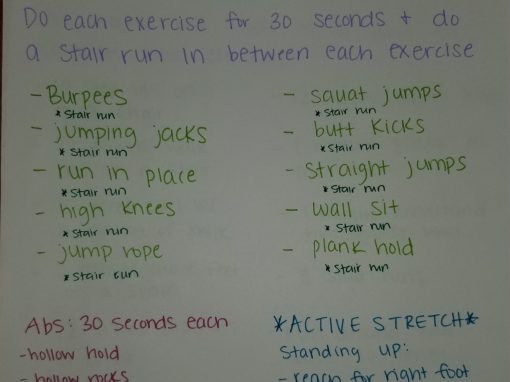 Do each exercise for 30 seconds + do
a stair run in between each exercise
- Burpees
* Stair run
- jumping jacks
* Stair run
- run in place
* Stair run
- high knees
* Stair run
- jump rope
* Stair run
- squat jumps
* Stair run
- butt kicks
* Stair run
- straight jumps
* Stair run
- wall sit
* Stair run
- plank hold
* Stair run
Abs: 30 seconds each
- hollow hold
- hollow rocks
*ACTIVE STRETCH*
Standing up:
- reach for right foot